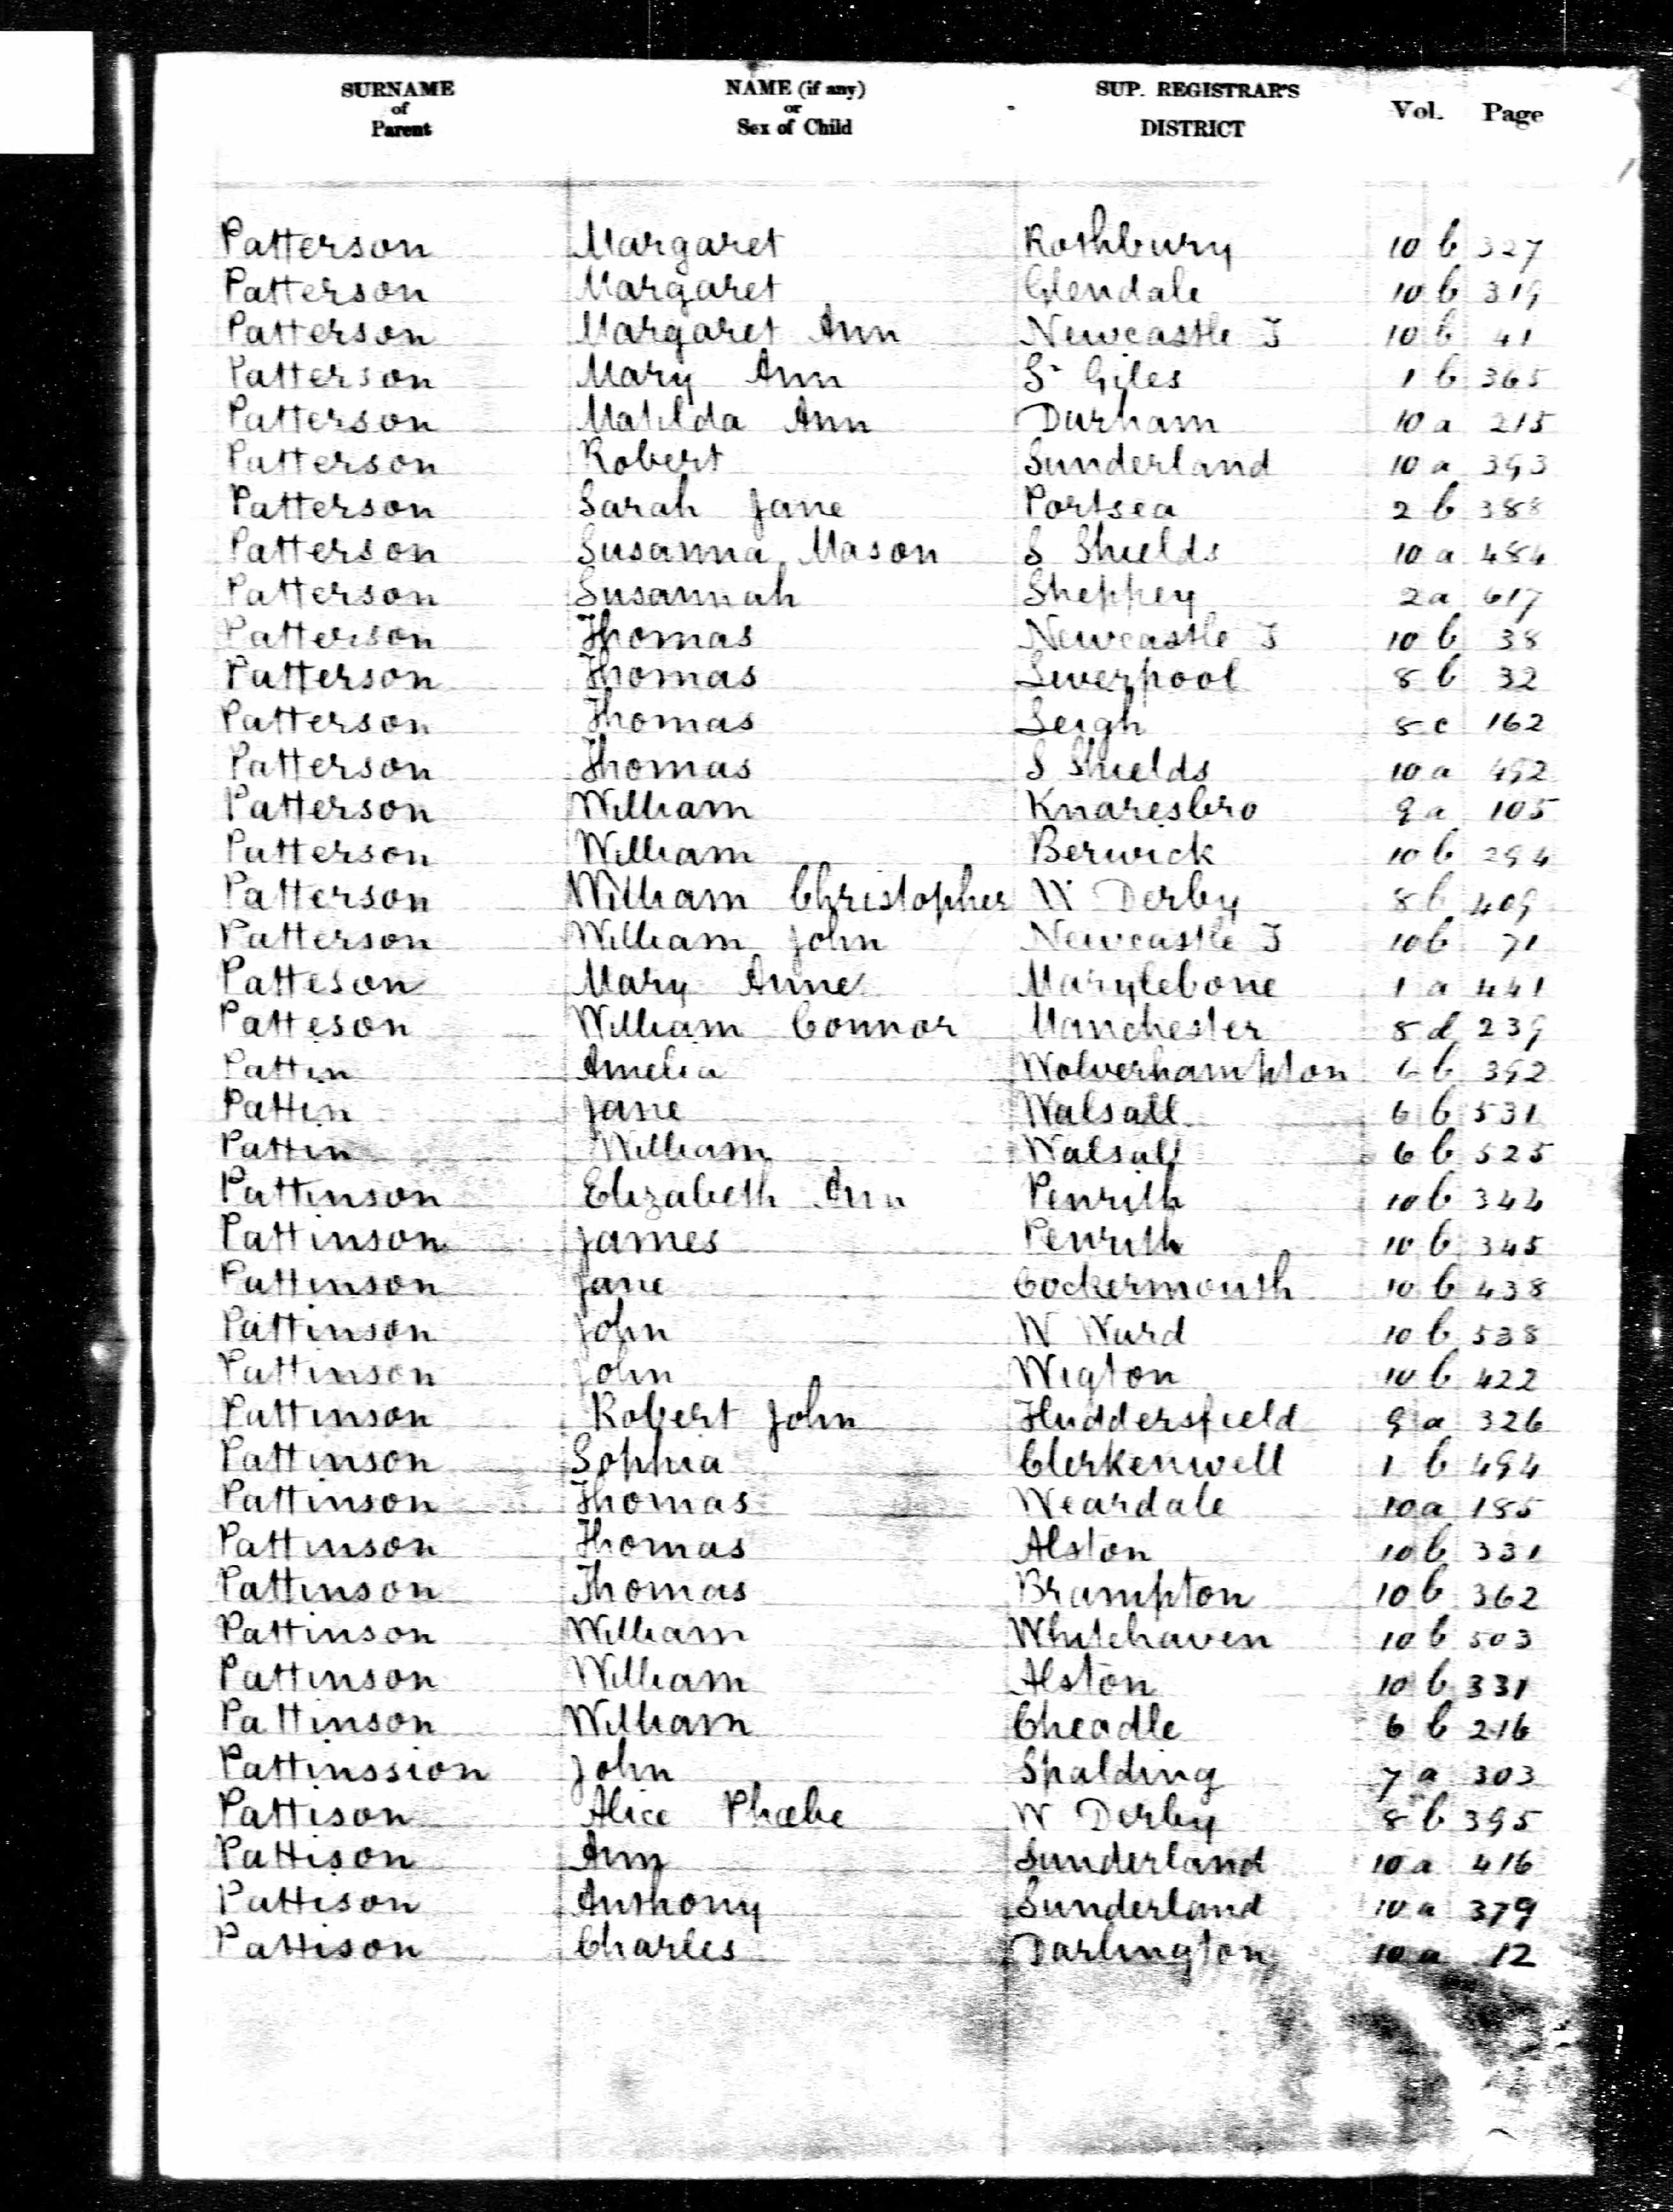 SURNAME of Parent NAME (if any) or Sex of Child SUP. REGISTRAR'S DISTRICT Vol. Page
Patterson Margaret Rothbury 10 b 327
Patterson Margaret Glendale 10 b 319
Patterson Margaret Ann Newcastle T 10 b 41
Patterson Mary Ann St Giles 1 b 365
Patterson Matilda Ann Durham 10 a 215
Patterson Robert Sunderland 10 a 393
Patterson Sarah Jane Portsea 2 b 388
Patterson Susanna Mason S Shields 10 a 484
Patterson Susannah Sheppey 2 a 617
Patterson Thomas Newcastle T 10 b 38
Patterson Thomas Liverpool 8 b 32
Patterson Thomas Leigh 8 c 162
Patterson Thomas S Shields 10 a 492
Patterson William Knaresbro 9 a 105
Patterson William Berwick 10 b 294
Patterson William Christopher W Derby 8 b 409
Patterson William John Newcastle T 10 b 71
Patteson Mary Anne Marylebone 1 a 441
Patteson William Connor Manchester 8 d 239
Pattin Amelia Wolverhampton 6 b 392
Pattin Jane Walsall 6 b 531
Pattin William Walsall 6 b 525
Pattinson Elizabeth Ann Penrith 10 b 344
Pattinson James Penrith 10 b 345
Pattinson Jane Cockermouth 10 b 438
Pattinson John W Ward 10 b 538
Pattinson John Wigton 10 b 422
Pattinson Robert John Huddersfield 9 a 326
Pattinson Sophia Clerkenwell 1 b 494
Pattinson Thomas Weardale 10 a 185
Pattinson Thomas Alston 10 b 331
Pattinson Thomas Brampton 10 b 362
Pattinson William Whitehaven 10 b 503
Pattinson William Alston 10 b 331
Pattinson William Cheadle 6 b 216
Pattinssion John Spalding 7 a 303
Pattison Alice Phœbe W Derby 8 b 395
Pattison Ann Sunderland 10 a 416
Pattison Anthony Sunderland 10 a 379
Pattison Charles Darlington 10 a 12